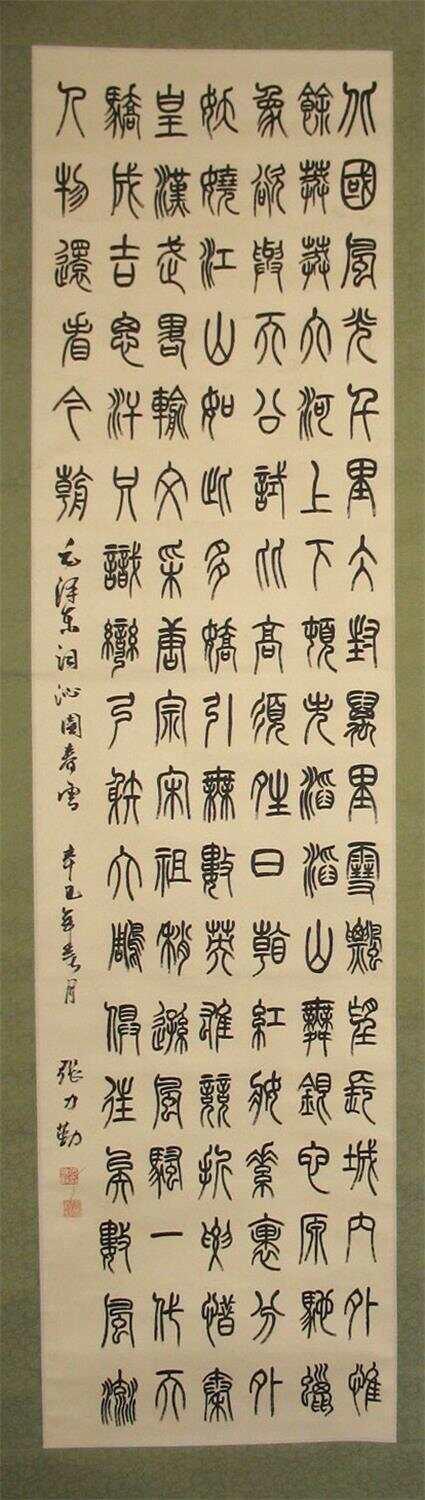 北國風光千里冰封萬里雪飄望長城內外惟
餘莽莽大河上下頓失滔滔山舞銀蛇原馳蠟
象欲與天公試比高須晴日看紅妝素裹分外
妖嬈江山如此多嬌引無數英雄競折腰惜秦
皇漢武略輸文采唐宗宋祖稍遜風騷一代天
驕成吉思汗只識彎弓射大鵰俱往矣數風流
人物還看今朝 毛澤東詞沁園春雪 辛巳年春月 張力勤